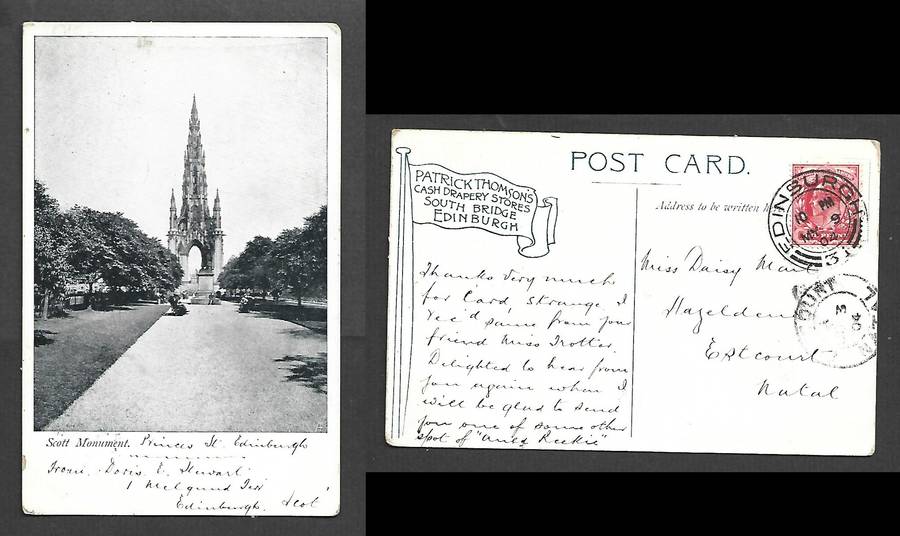 Scott Monument. Princes St. Edinburgh
From. Doris E. Stewart
1 Melgund Terr
Edinburgh. Scot
POST CARD.
PATRICK THOMSON'S
CASH DRAPERY STORES
SOUTH BRIDGE
EDINBURGH
Thanks very much
for Card, strange I
rec'd same from your
friend Miss Trotter
Delighted to hear from
you again when I
will be glad to send
you one of some other
spot of "Auld Reekie"
Address to be written
EDINBURGH
Miss Daisy
Hazeldene
Estcourt
Natal